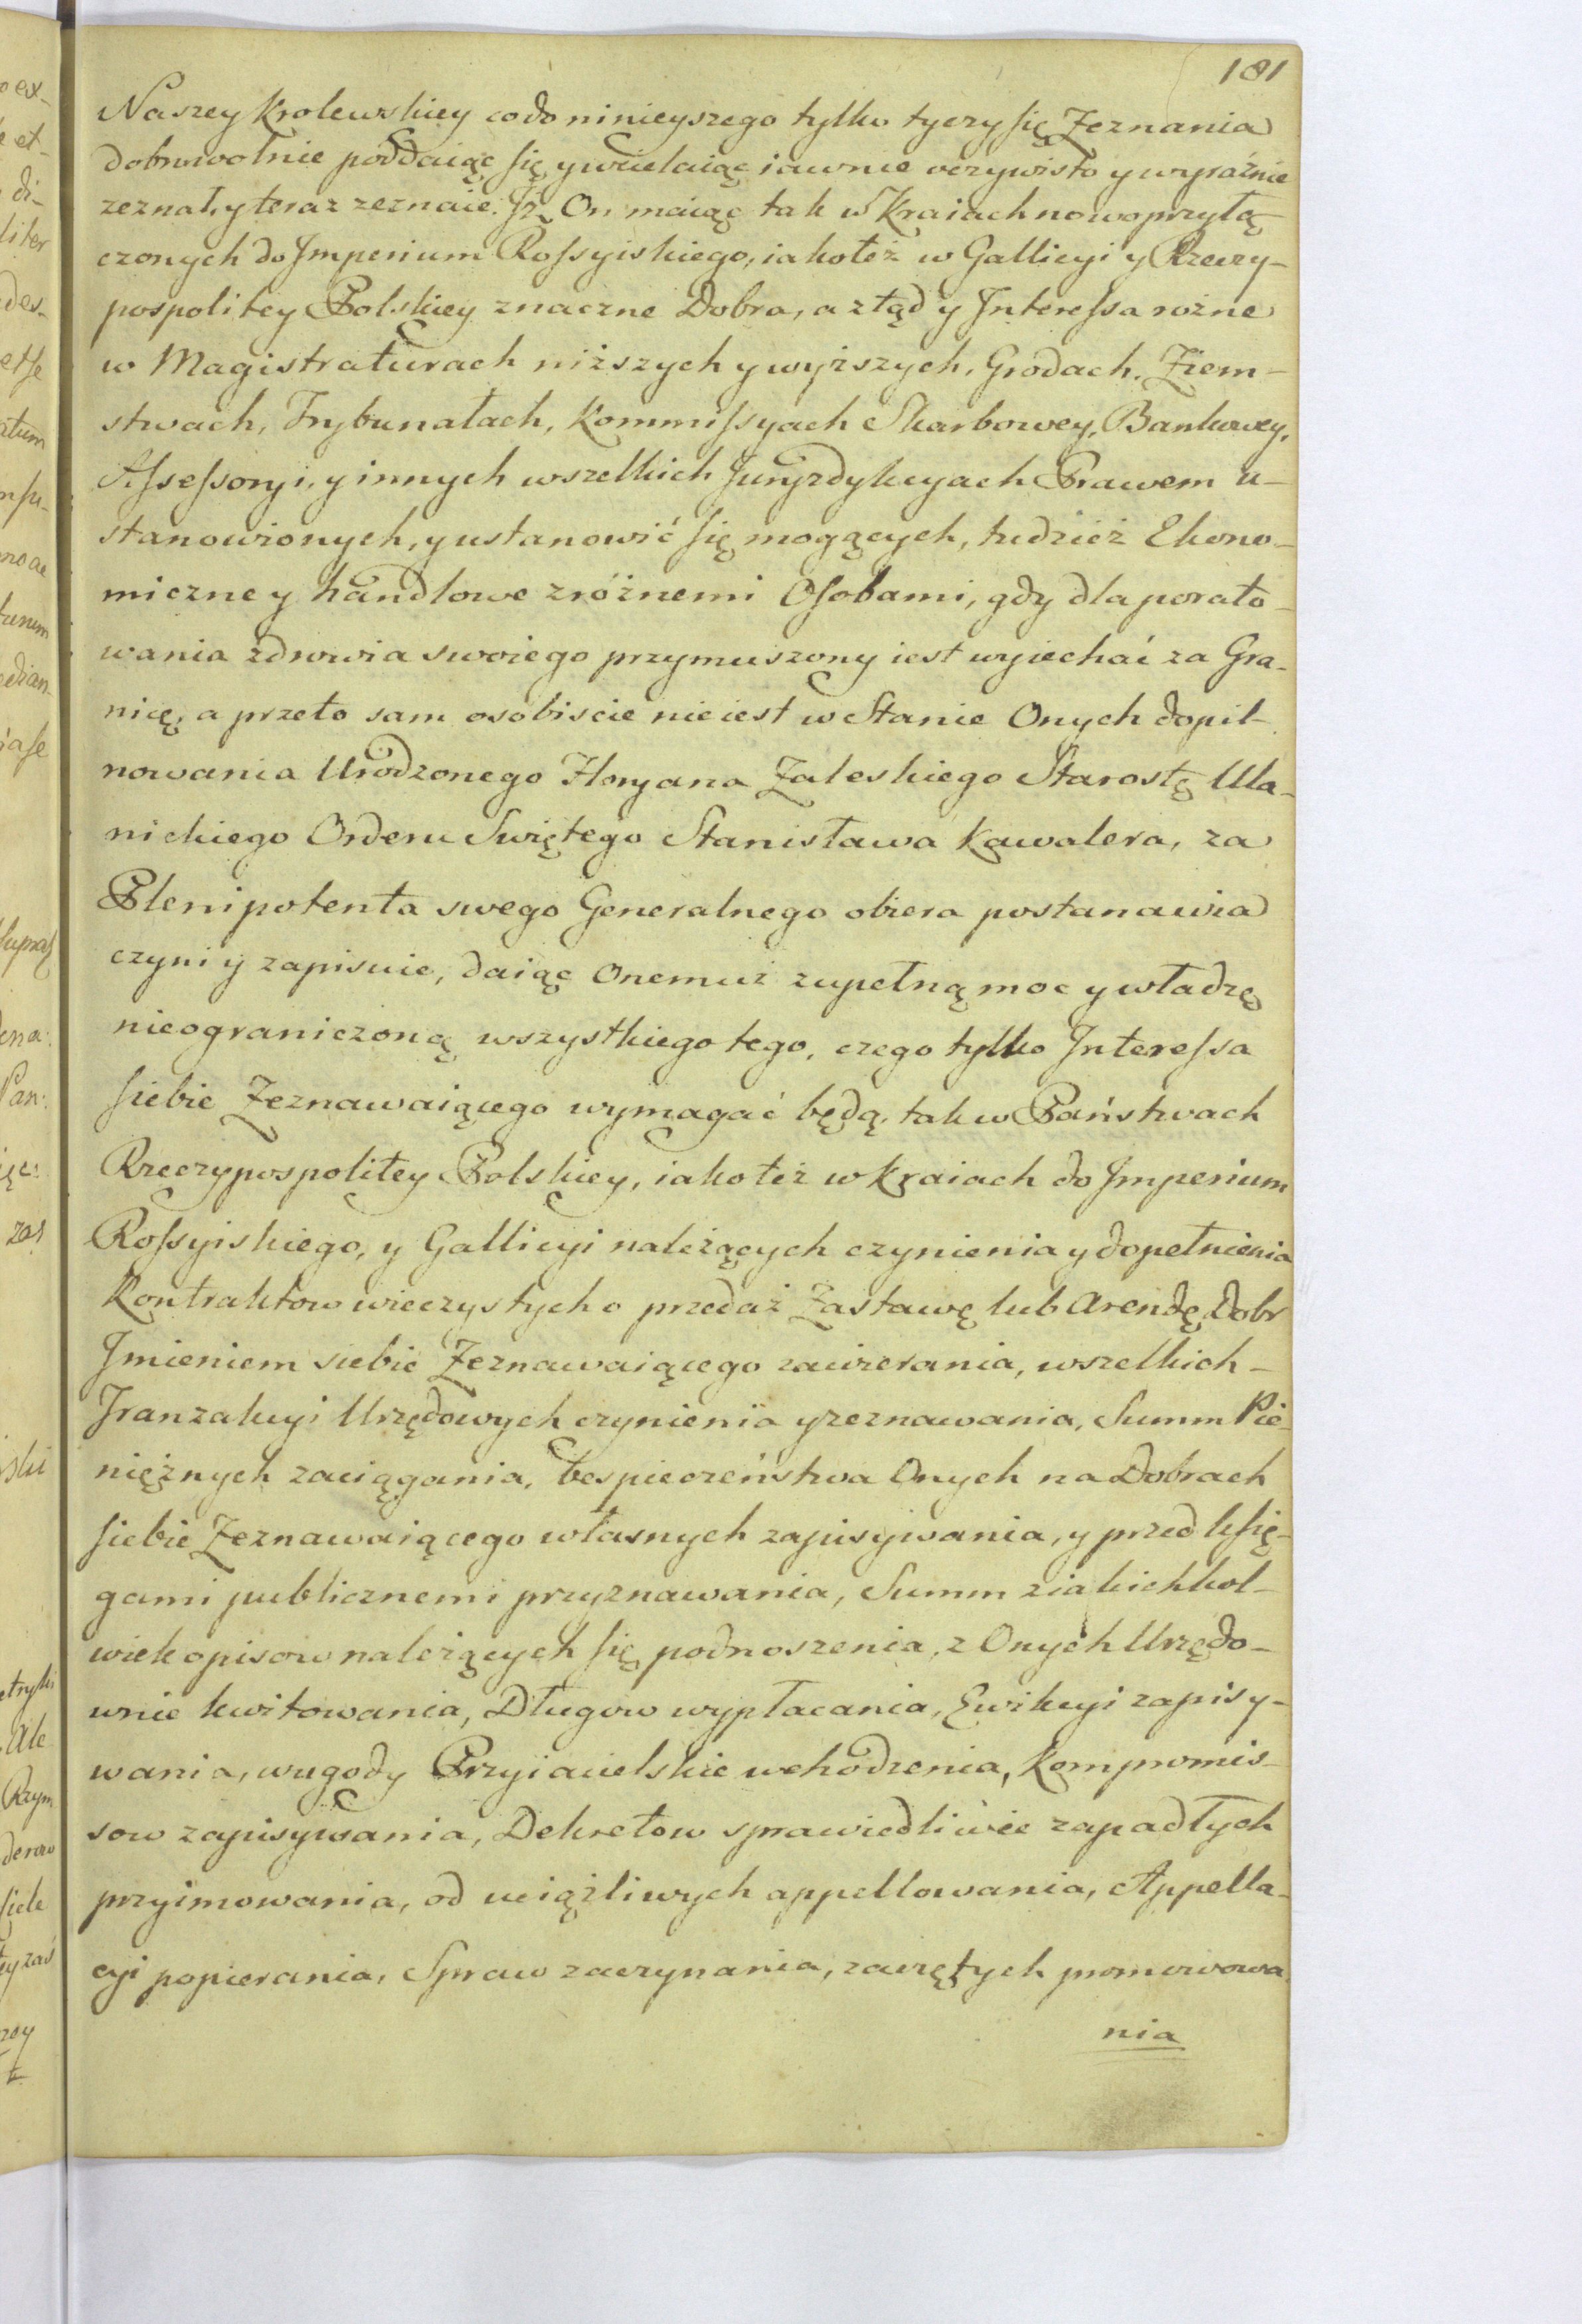 181
Naszey Krolewskiey co do ninieyszego tylko tyczy się Zeznania
dobrowolnie poddaiąc się, y wcielaiąc iawnie oczywisto y wyraźnie
zeznał, y teraz zeznaie. Iż On maiąc tak w Kraiach nowoprzyłą
czonych do Imperium Rossyiskiego, iako też w Gallicyi y Rzeczy-
pospolitey Polskiey znaczne Dobra, a ztąd y Interessa rożne
w Magistraturach niższych y wyższych, Grodach. Ziem-
stwach, Trybunałach, Kommissyach Skarbowey, Bankowey,
Assessoryi, y innych wszelkich Juryzdykcyach Prawem u-
stanowionych, y ustanowić się mogących, tudzież Ekono-
miczne y handlowe z różnemi Osobami, gdy dla porato-
wania zdrowia swoiego przymuszony iest wyiechać za Gra-
nicę, a przeto sam osobiscie nie iest w Stanie Onych dopil-
nowania Urodzonego Floryana Zaleskiego Starostę Ula-
nickiego Orderu Swiętego Stanisława Kawalera, za
Plenipotenta swego Generalnego obiera postanawia
czyni y zapisuie, daiąc Onemuż zupełną moc y władzę
nieograniczoną wszystkiego tego, czego tylko Interessa
siebie Zeznawaiącego wymagać będą, tak w Państwach
Rzeczypospolitey Polskiey, iako też w Kraiach do Imperium
Rossyiskiego, y Gallicyi należących czynienia y dopełnienia
Kontraktow wieczystych o przedaż Zastawę lub Arendę Dobr
Imieniem siebie Zeznawaiącego zawierania, wszelkich-
Tranzakcyi Urzędowych czynienia y zeznawania, Summ Pie-
niężnych zaciągania, bespieczeństwa Onych na Dobrach
siebie Zeznawaiącego własnych zapisywania, y przed księ-
gami publicznemi przyznawania, Summ z iakichkol-
wiek opisow należących się podnoszenia, z Onych Urzędo-
wnie kwitowania, Długow wypłacania, Ewikcyi zapisy-
wania, w ugody Przyiacielskie wchodzenia, Kompromis-
sow zapisywania, Dekretow sprawiedliwie zapadłych
przyimowania, od uciążliwych appellowania, Appella-
cyi popierania, Spraw zaczynania, zaczętych promowowa
nia